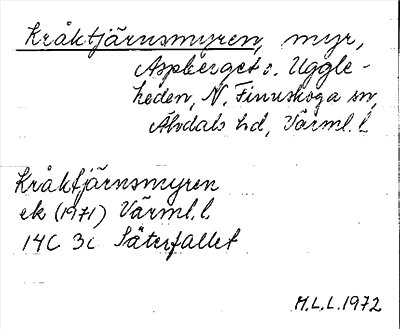 Kråktjärnsmyren, myr,
Aspberget o. Uggle-
heden, N. Finnskoga sn,
Älvdals hd, Värml. l.
Kråktjärnsmyren
ek (1971) Värml. l.
14C 3c Säterfallet
M.L.L. 1972